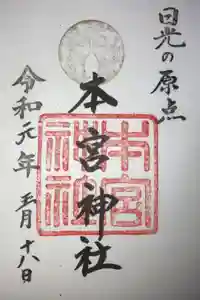 日光の原点
本宮神社
本宮神社
令和元年 五月 十八日